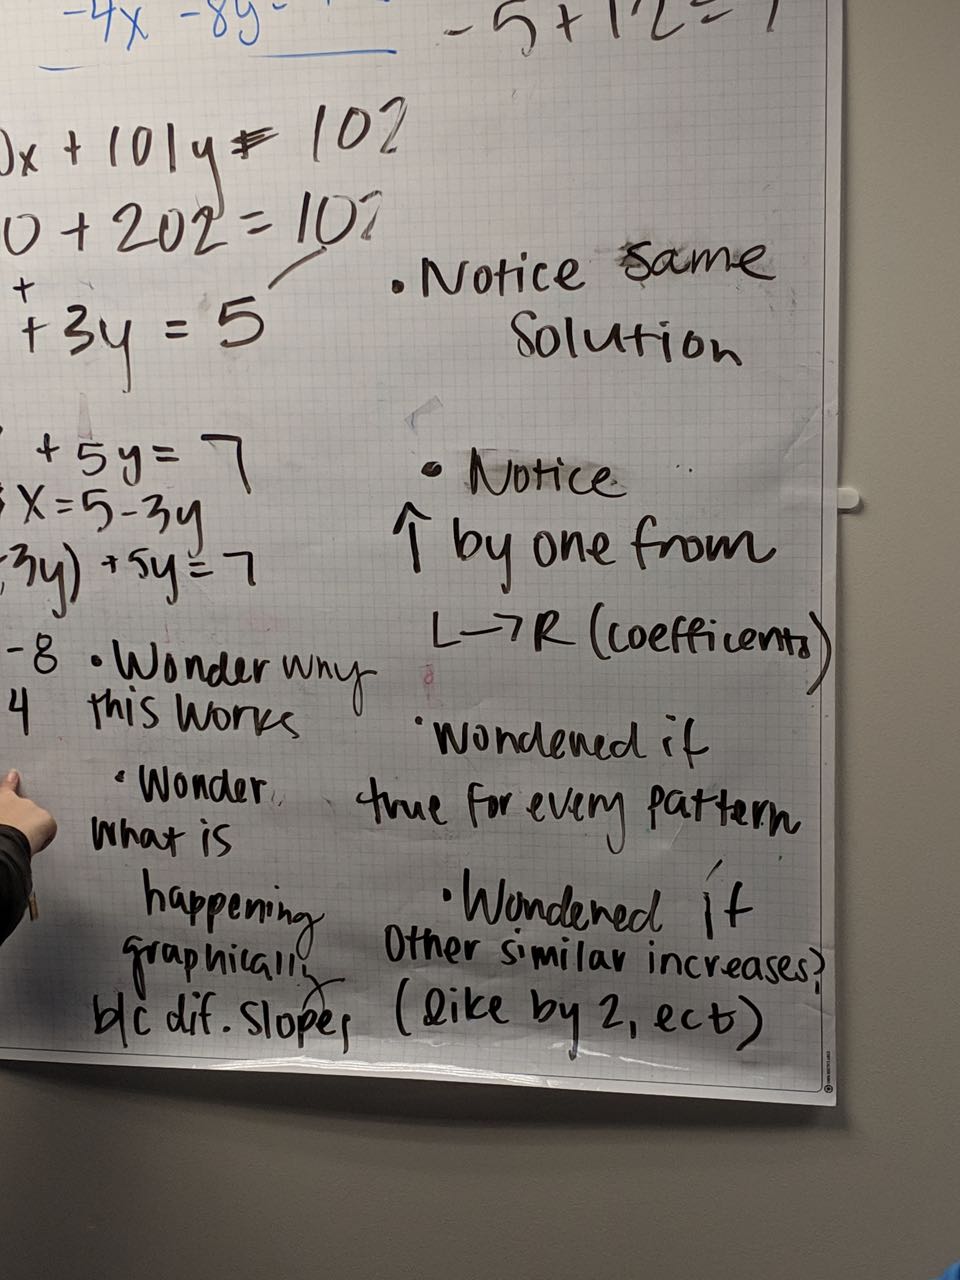 -4x -8y=
-5+12=7
x + 101y = 102
0 + 202 = 102
+
+ 3y = 5
• Notice same
Solution
+ 5y = 7
x = 5 - 3y
3y) + 5y = 7
• Notice
↑ by one from
L→R (coefficents)
-8
4
• Wonder why
this works
• Wonder
what is
happening
graphically
b/c dif. slopes
• Wondened if
true for every pattern
• Wondened if
other similar increases?
(like by 2, ect)